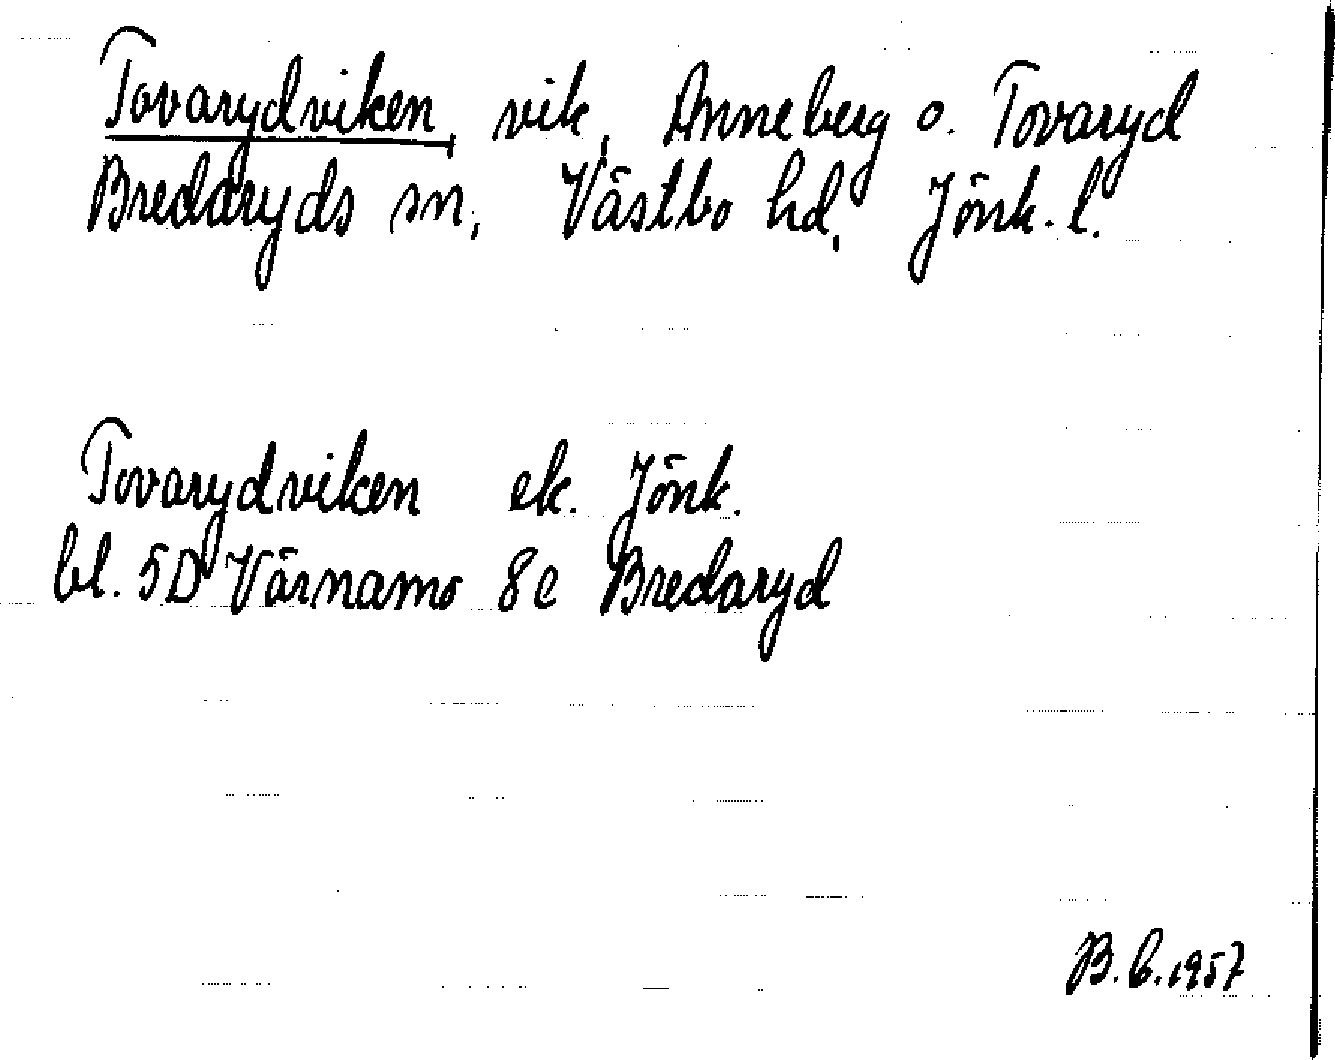 Tovarydviken, vik, Anneberg o. Tovaryd
Bredaryds sn, Västbo hd, Jönk. l.
Tovarydviken ek. Jönk.
bl. 5D Värnamo 8e Bredaryd
B.b.1957